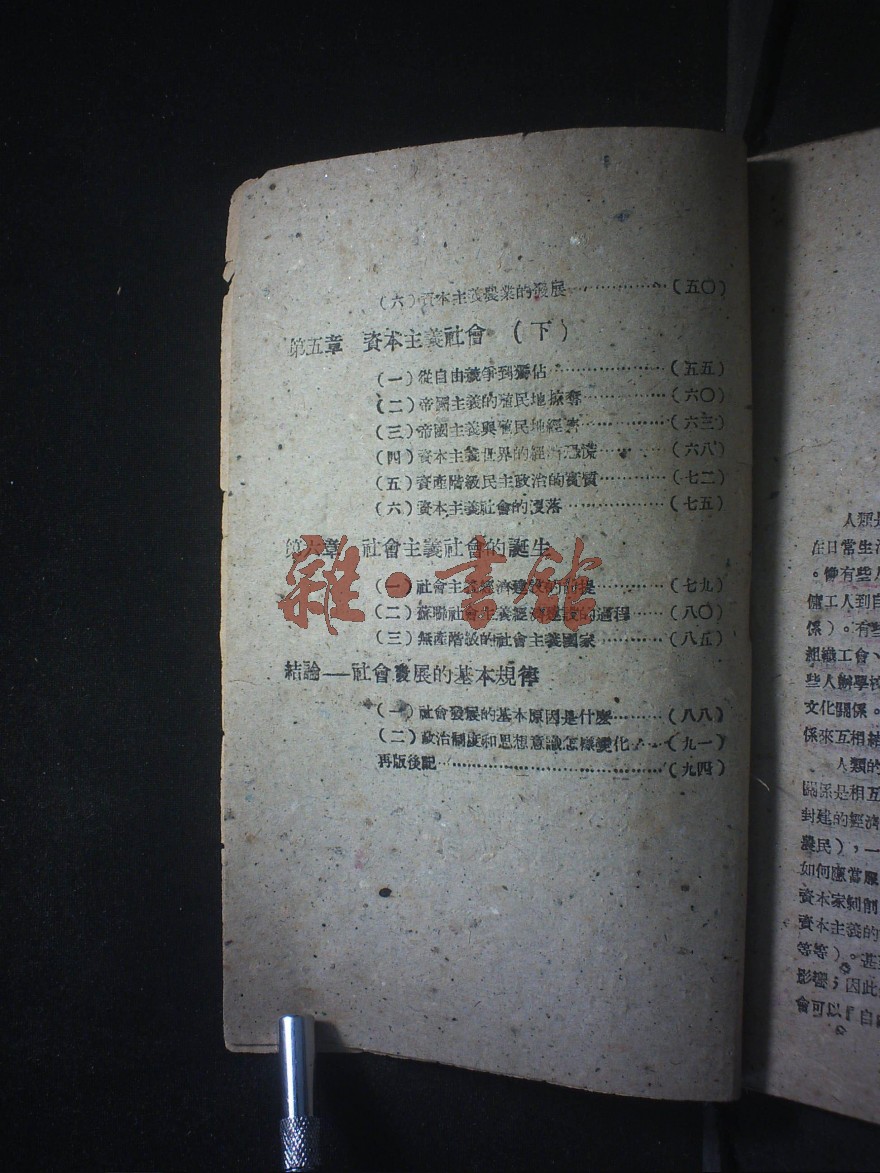 (六)資本主義農業的發展…………(五〇)
第五章 資本主義社會 (下)
(一)從自由競爭到獨佔…………(五五)
(二)帝國主義的殖民地掠奪…………(六〇)
(三)帝國主義與殖民地經濟…………(六三)
(四)資本主義世界的經濟恐慌…………(六八)
(五)資產階級民主政治的實質…………(七二)
(六)資本主義社會的沒落…………(七五)
第六章 社會主義社會的誕生
(一)社會主義經濟建設的前提…………(七九)
(二)蘇聯社會主義經濟建設的過程……(八〇)
(三)無產階級的社會主義國家…………(八五)
結論——社會發展的基本規律
(一)社會發展的基本原因是什麼………(八八)
(二)政治制度和思想意識怎樣變化……(九一)
再版後記…………………………(九四)
雜·書館
人類是
在日常生活
。他有些人
傭工人到自
係)。有些
組織工會、
些人辦學校
文化關係。
係來互相結
人類的
關係是相互
封建的經濟
農民),一
如何應當服
資本家剝削
資本主義的
等等)。甚至
影響;因此
會可以『自由